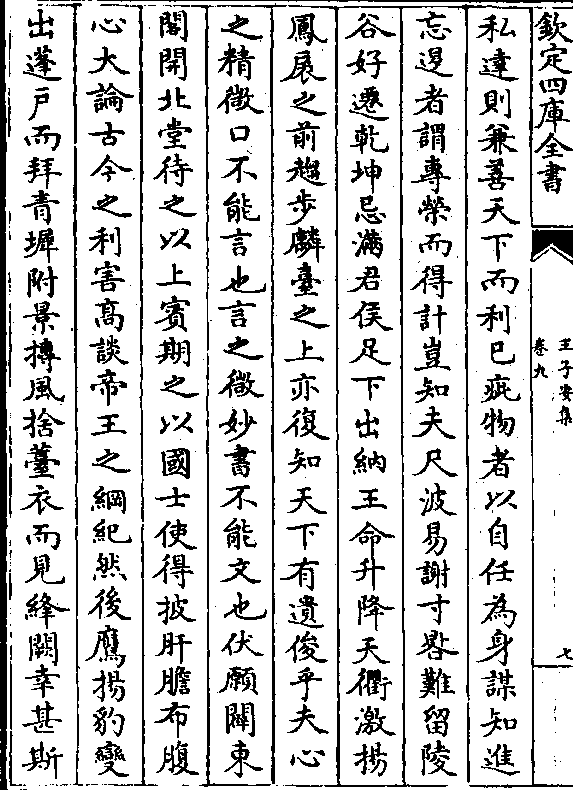 欽定四庫全書
王子安集
卷九
七
私達則兼善天下而利已疵物者以自任為身謀知進
忘退者謂專榮而得計豈知夫尺波易謝寸晷難留陵
谷好遷乾坤忌滿君侯足下出納王命升降天衢激揚
鳳扆之前趨步麟臺之上亦復知天下有遺俊乎夫心
之精微口不能言也言之微妙書不能文也伏願闢東
閣開北堂待之以上賓期之以國士使得披肝膽布腹
心大論古今之利害高談帝王之綱紀然後鷹揚豹變
出蓬戶而拜青墀附景摶風捨薹衣而見絳闕幸甚斯